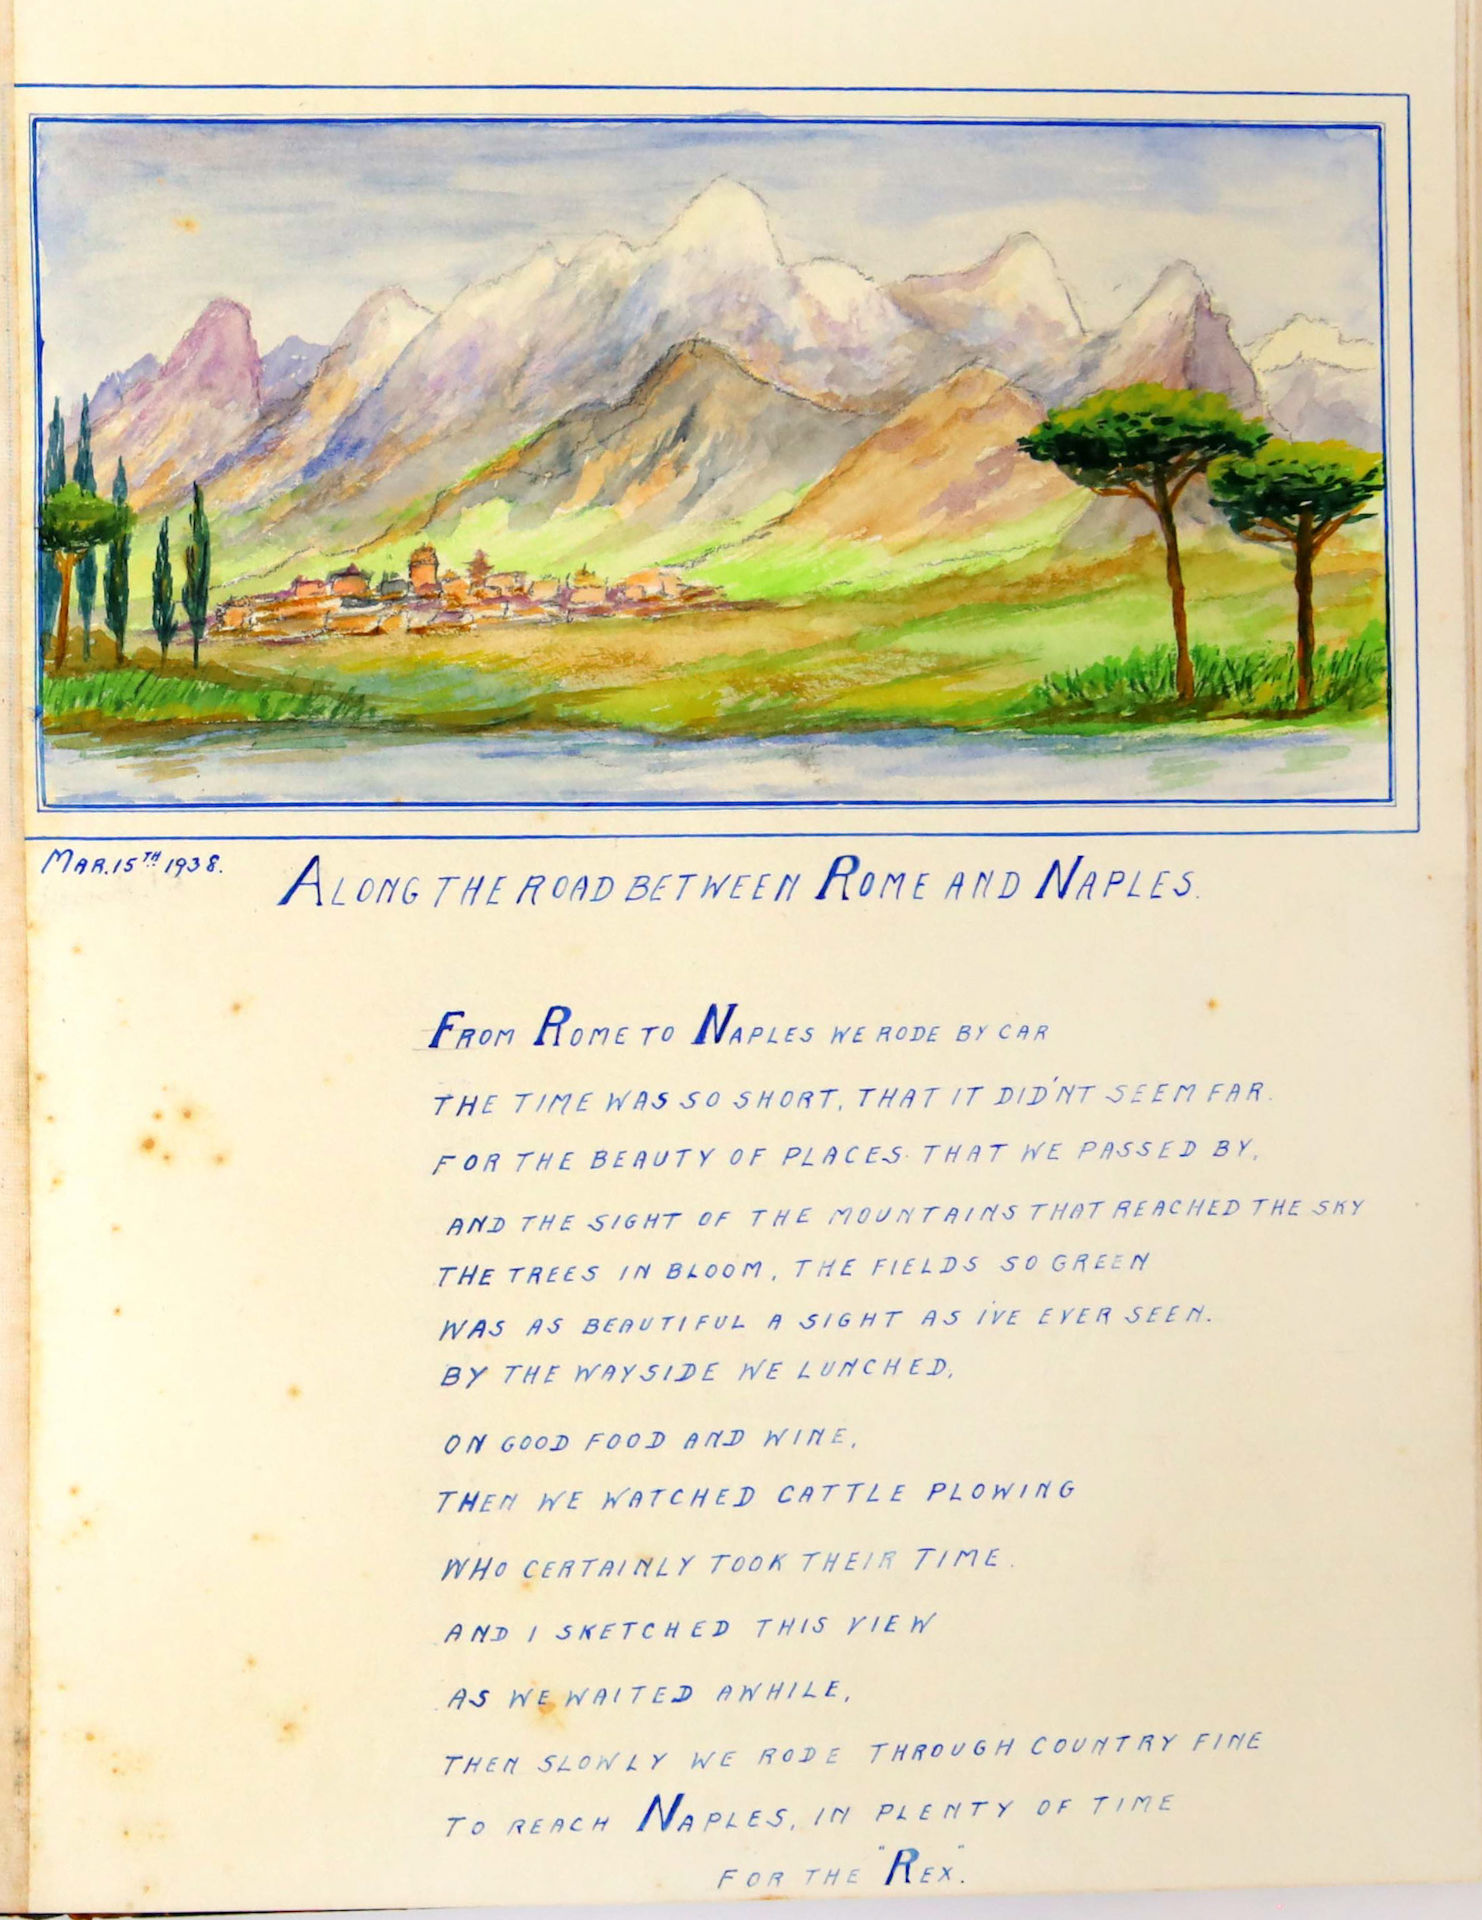 MAR. 15TH 1938.
ALONG THE ROAD BETWEEN ROME AND NAPLES.
FROM ROME TO NAPLES WE RODE BY CAR
THE TIME WAS SO SHORT, THAT IT DID'NT SEEM FAR.
FOR THE BEAUTY OF PLACES THAT WE PASSED BY,
AND THE SIGHT OF THE MOUNTAINS THAT REACHED THE SKY
THE TREES IN BLOOM, THE FIELDS SO GREEN
WAS AS BEAUTIFUL A SIGHT AS I'VE EVER SEEN.
BY THE WAYSIDE WE LUNCHED,
ON GOOD FOOD AND WINE,
THEN WE WATCHED CATTLE PLOWING
WHO CERTAINLY TOOK THEIR TIME.
AND I SKETCHED THIS VIEW
AS WE WAITED AWHILE,
THEN SLOWLY WE RODE THROUGH COUNTRY FINE
TO REACH NAPLES, IN PLENTY OF TIME
FOR THE "REX".